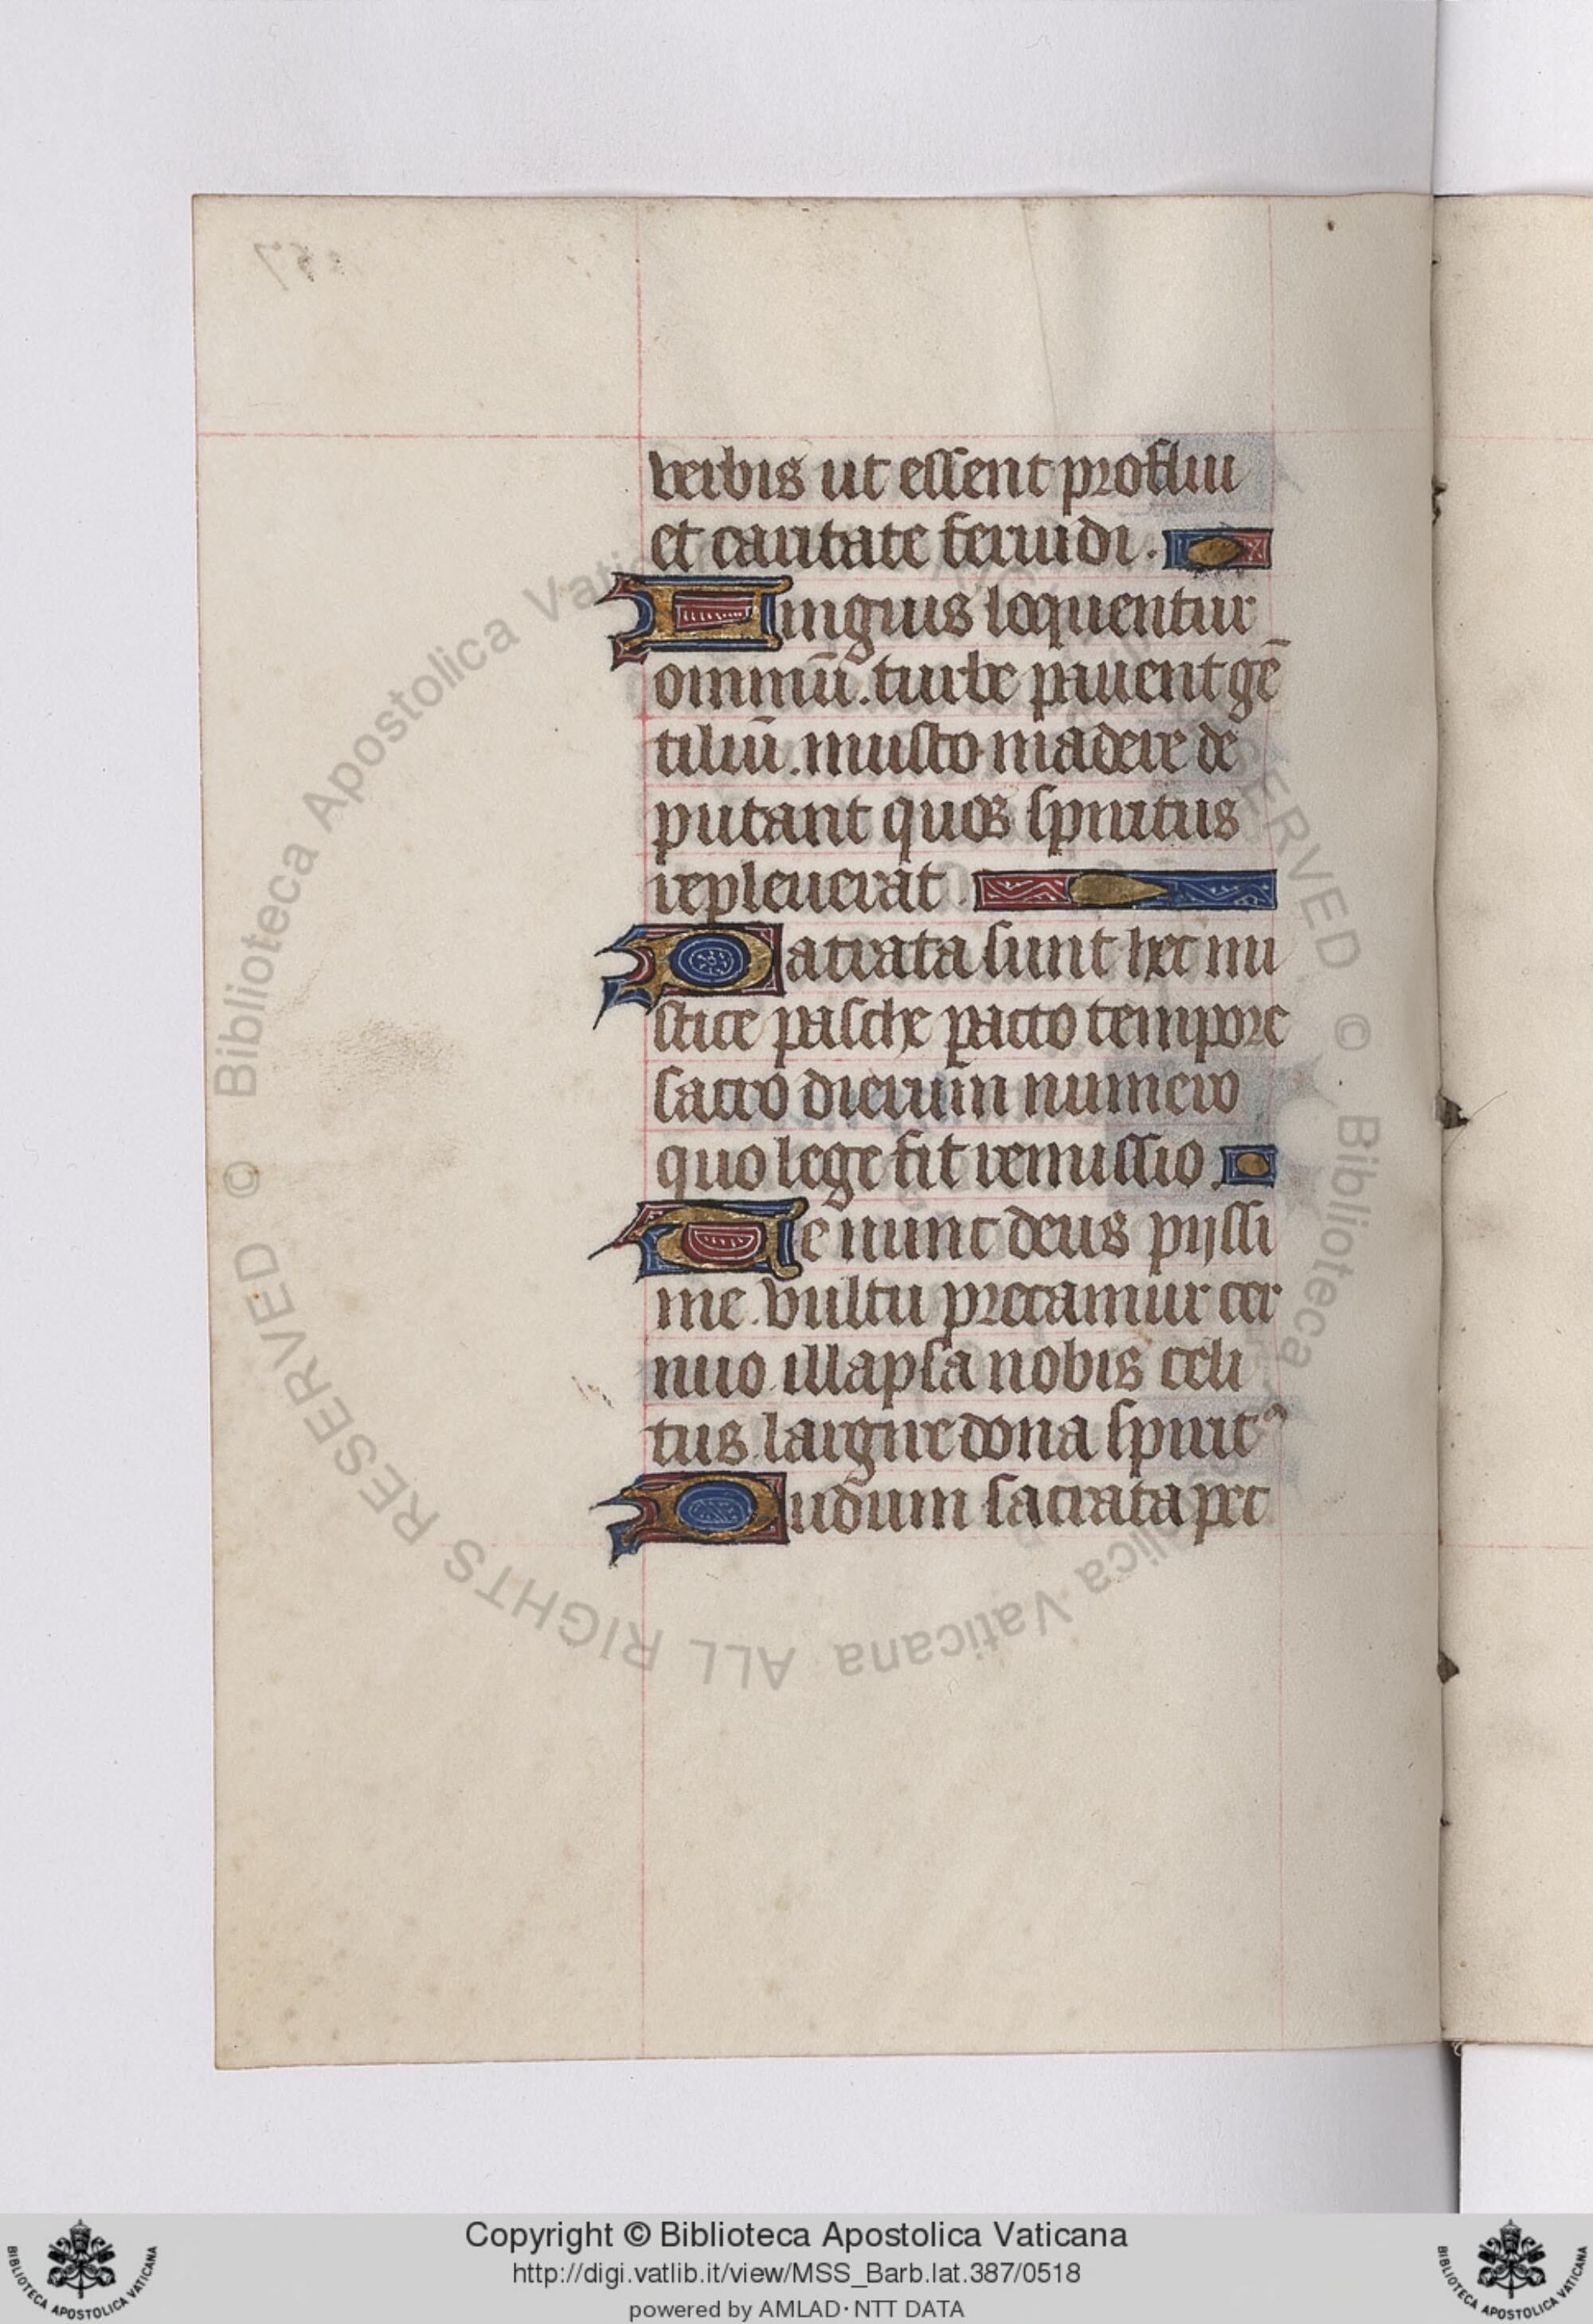 verbis ut essent proflui
et caritate feruidi.
Linguis loquentur
omniū. turbe pauent gē
tiliū. musto madere de
putant quos spiritus
repleuerat.
Patrata sunt hec mi
stice pasche pacto tempore
sacro dierum numero
quo lege fit remissio.
Te nunc deus pijssi
me. vultu precamur cer
nuo. illapsa nobis celi
tus. largire dona spiritꝰ
Dudum sacrata pec
© Biblioteca Apostolica Vaticana ALL RIGHTS RESERVED
Copyright © Biblioteca Apostolica Vaticana
http://digi.vatlib.it/view/MSS_Barb.lat.387/0518
powered by AMLAD·NTT DATA
BIBLIOTECA APOSTOLICA VATICANA
BIBLIOTECA APOSTOLICA VATICANA